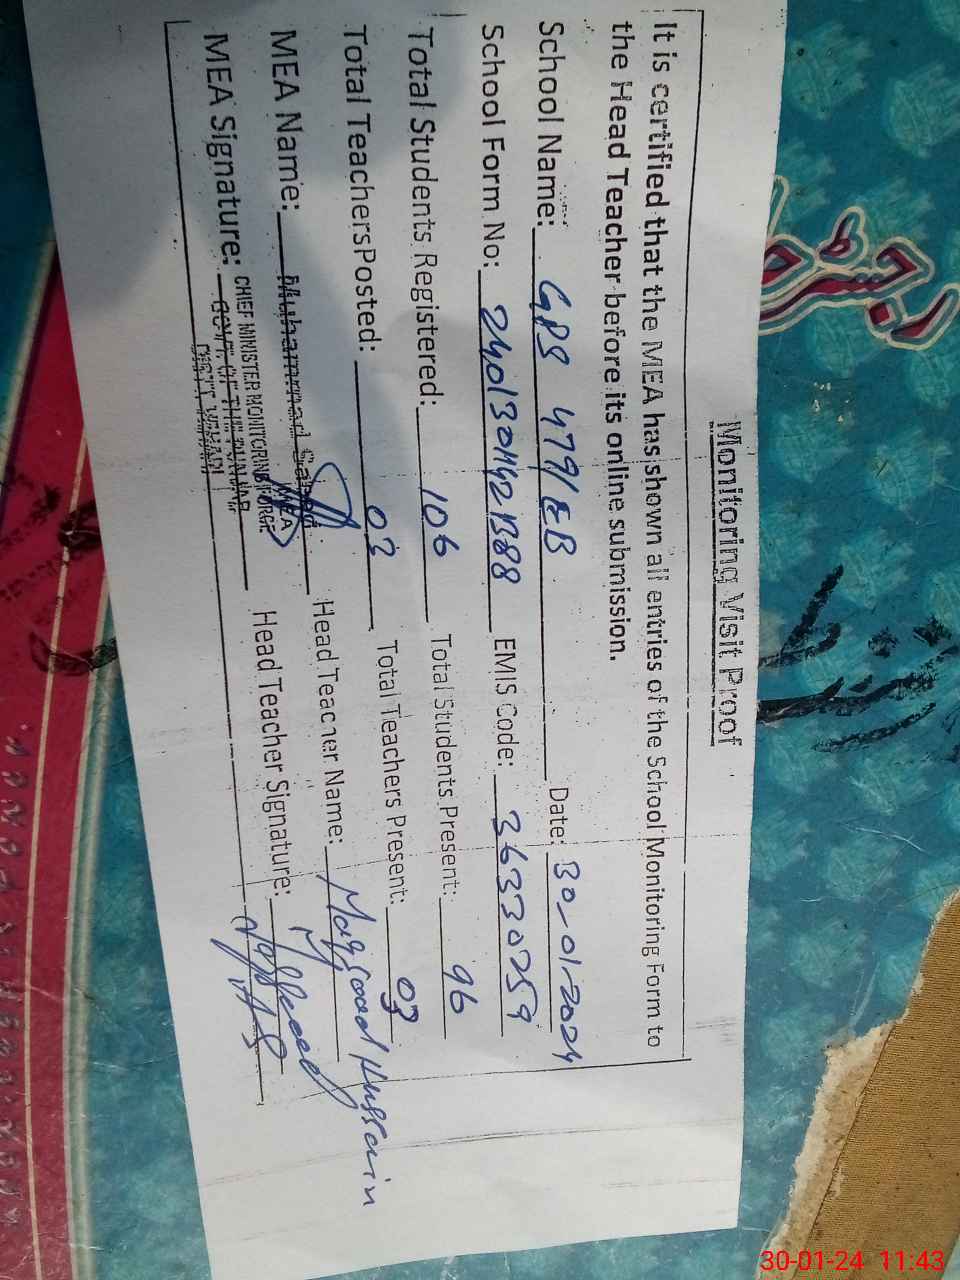 Monitoring Visit Proof
It is certified that the MEA has shown all entries of the School Monitoring Form to
the Head Teacher before its online submission.
School Name: GPS 479/EB Date: 30-01-2024
School Form No: EMIS Code: 36330759
Total Students Registered: 106 Total Students Present: 96
Total Teachers Posted: 03 Total Teachers Present: 03
MEA Name: Muhammad Head Teacher Name: Maqsood Hussain
MEA
MEA Signature: Head Teacher Signature:
CHIEF MINISTER MONITORING FORCE
GOVT. OF THE PUNJAB
DISTT. VEHARI
30-01-24 11:43